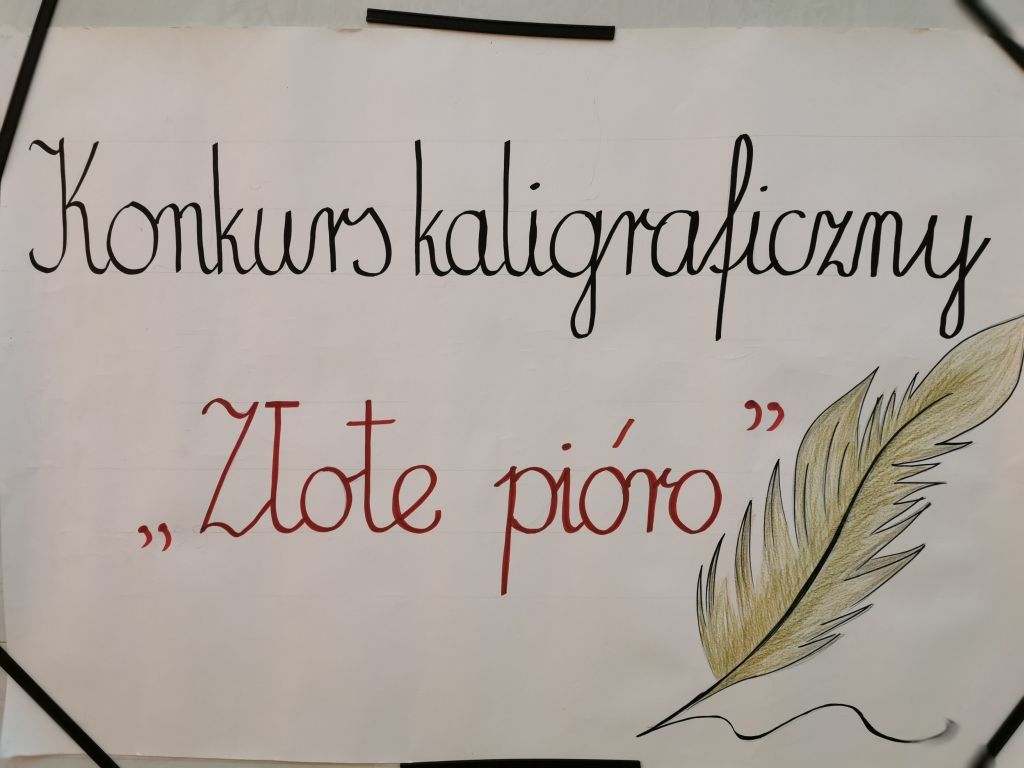 Konkurs kaligraficzny
„Złote pióro”